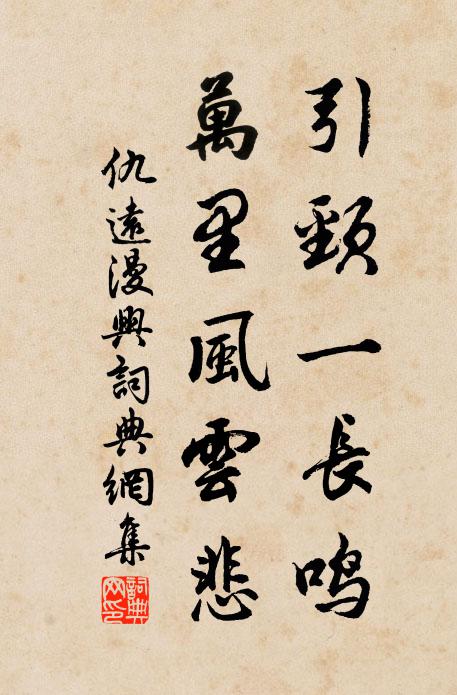 引頸一長鳴
萬里風雲悲
仇遠漫興詞典網集
詞典網印